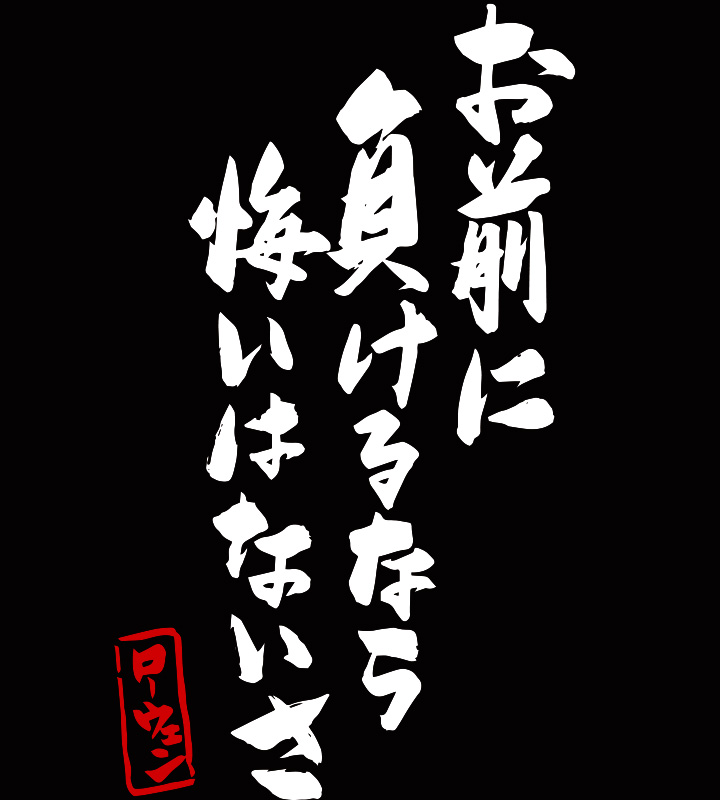 お前に
負けるなら
悔いはないさ
ローウェン